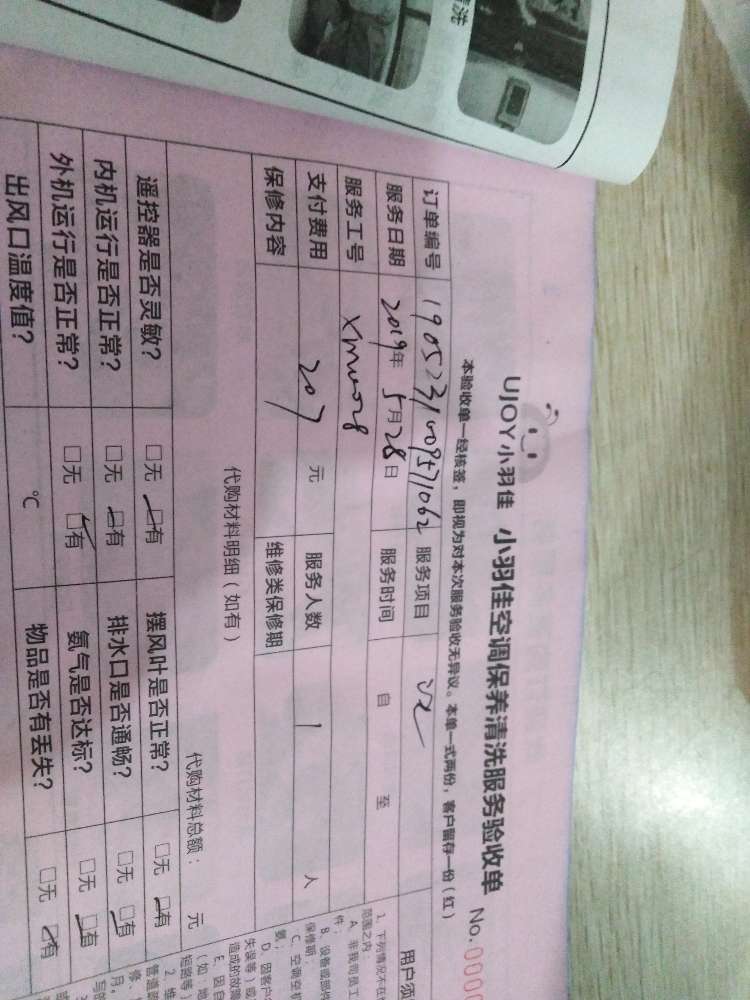 洗
UJOY小羽佳 小羽佳空调保养清洗服务验收单 No.0000
本验收单一经核签，即视为对本次服务验收无异议。本单一式两份，客户留存一份（红）
订单编号 1905231009571062 服务项目
服务日期 2019年 5月28日 服务时间 自 至
服务工号 xmuo028
支付费用 207 元 服务人数 1 人
保修内容 维修类保修期
代购材料明细（如有） 代购材料总额： 元
遥控器是否灵敏？ □无 □有 摆风叶是否正常？ □无 □有
内机运行是否正常？ □无 □有 排水口是否通畅？ □无 □有
外机运行是否正常？ □无 □有 氨气是否达标？ □无 □有
出风口温度值？ ℃ 物品是否有丢失？ □无 □有
用户须
1、下列情况不在
范围之内：
A、非我司员工
件；
B、设备或部件
保修期；
C、空调空机
氨；
D、因客户
失误等）或
造成的故障
E、因自
（如：地
短路等）
2、维
管道
修，
月。